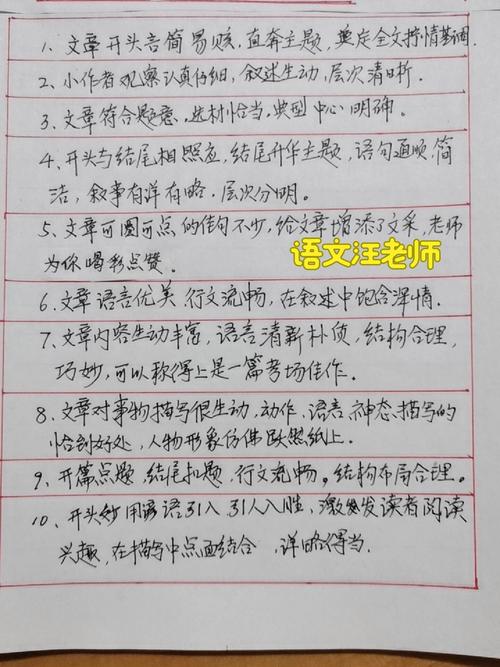 1、文章开头言简易赅，直奔主题，奠定全文抒情基调
2、小作者观察认真仔细，叙述生动，层次清晰．
3、文章符合题意，选材恰当，典型中心明确。
4、开头与结尾相照应，结尾升华主题，语句通顺，简
洁，叙事有详有略．层次分明。
5、文章可圈可点的佳句不少，给文章增添了文采，老师
为你喝彩点赞。
语文汪老师
6、文章语言优美．行文流畅，在叙述中饱含深情．
7、文章内容生动丰富，语言清新朴侦，结构合理，
巧妙，可以称得上是一篇考场佳作．
8、文章对事物描写很生动，动作、语言、神态、描写的
恰到好处，人物形象仿佛跃然纸上．
9、开篇点题，结尾扣题，行文流畅。结构布局合理．
10、开头妙用谚语引入，引人入胜，激发读者阅读
兴趣，在描写中点面结合，详略得当．